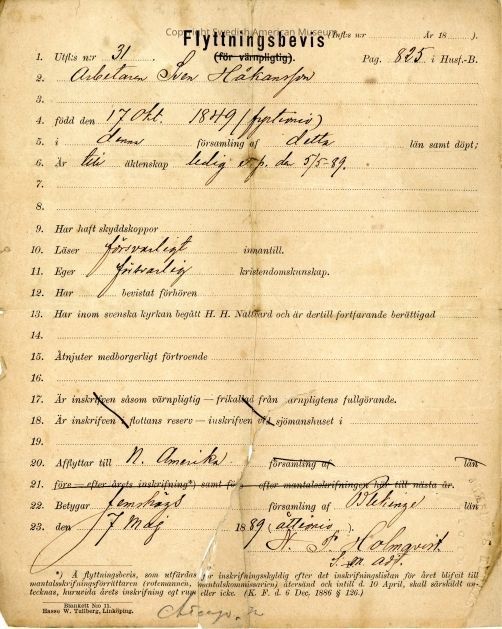 Copyright Swedish American Museum
Flyttningsbevis (Infl:s n:r År 18 ).
(för värnpligtig).
1. Utfl:s n:r 31 Pag. 825 i Husf.-B.
2. Arbetaren Sven Håkansson
3.
4. född den 17 Okt. 1849 (fyrtionio)
5. i denna församling af detta län samt döpt;
6. Är till äktenskap ledig e. p. da 5/5-89.
7.
8.
9. Har haft skyddskoppor
10. Läser försvarligt innantill.
11. Eger försvarlig kristendomskunskap.
12. Har bevistat förhören
13. Har inom svenska kyrkan begått H. H. Nattvard och är dertill fortfarande berättigad
14.
15. Åtnjuter medborgerligt förtroende
16.
17. Är inskrifven såsom värnpligtig — frikallad från värnpligtens fullgörande.
18. Är inskrifven i flottans reserv — inskrifven vid sjömanshuset i
19.
20. Afflyttar till N. Amerika församling af län
21. före — efter årets inskrifning*) samt för — efter mantalsskrifningen för till nästa år.
22. Betygar Jemshögs församling af Blekinge län
23. den 7 Maj 1889 (åttionio).
N. P. Holmqvist
adj.
*) A flyttningsbevis, som utfärdas för inskrifningsskyldig efter det inskrifningslistan för året blifvit till
mantalsskrifningsförrättaren (rotemannen, mantalskommissarien) återsänd och intill d. 10 April, skall särskildt an-
tecknas, huruvida årets inskrifning egt rum eller icke. (K. F. d. 6 Dec. 1886 § 126.)
Blankett N:o 11.
Hasse W. Tullberg, Linköping.